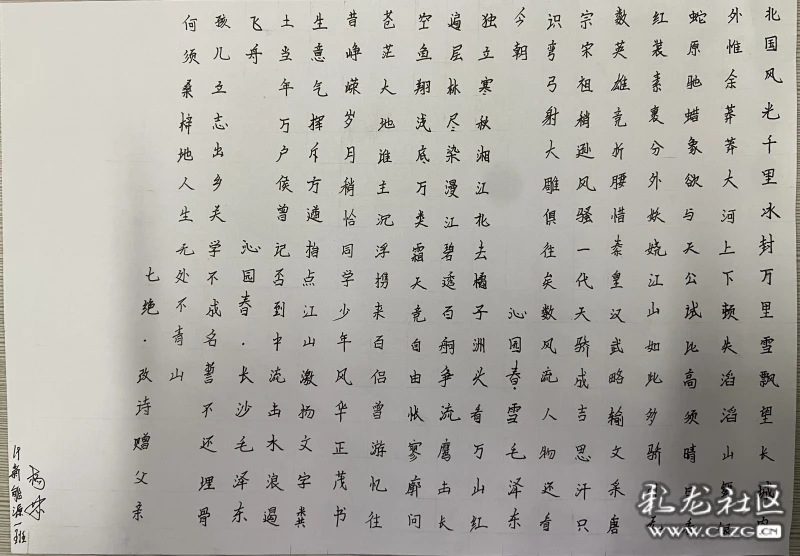 北国风光千里冰封万里雪飘望长城内
外惟余莽莽大河上下顿失滔滔山舞银
蛇原驰蜡象欲与天公试比高须晴日看
红装素裹分外妖娆江山如此多骄
数英雄竞折腰惜秦皇汉武略输文采唐
宗宋祖稍逊风骚一代天骄成吉思汗只
识弯弓射大雕俱往矣数风流人物还看
今朝
沁园春·雪毛泽东
独立寒秋湘江北去橘子洲头看万山红
遍层林尽染漫江碧透百舸争流鹰击长
空鱼翔浅底万类霜天竞自由怅寥廓问
苍茫大地谁主沉浮携来百侣曾游忆往
昔峥嵘岁月稍恰同学少年风华正茂书
生意气挥斥方遒指点江山激扬文字粪
土当年万户侯曾记否到中流击水浪遏
飞舟
沁园春·长沙毛泽东
孩儿立志出乡关学不成名誓不还埋骨
何须桑梓地人生无处不青山
七绝·改诗赠父亲
19新能源一班
彩龙社区
WWW.CLZG.CN